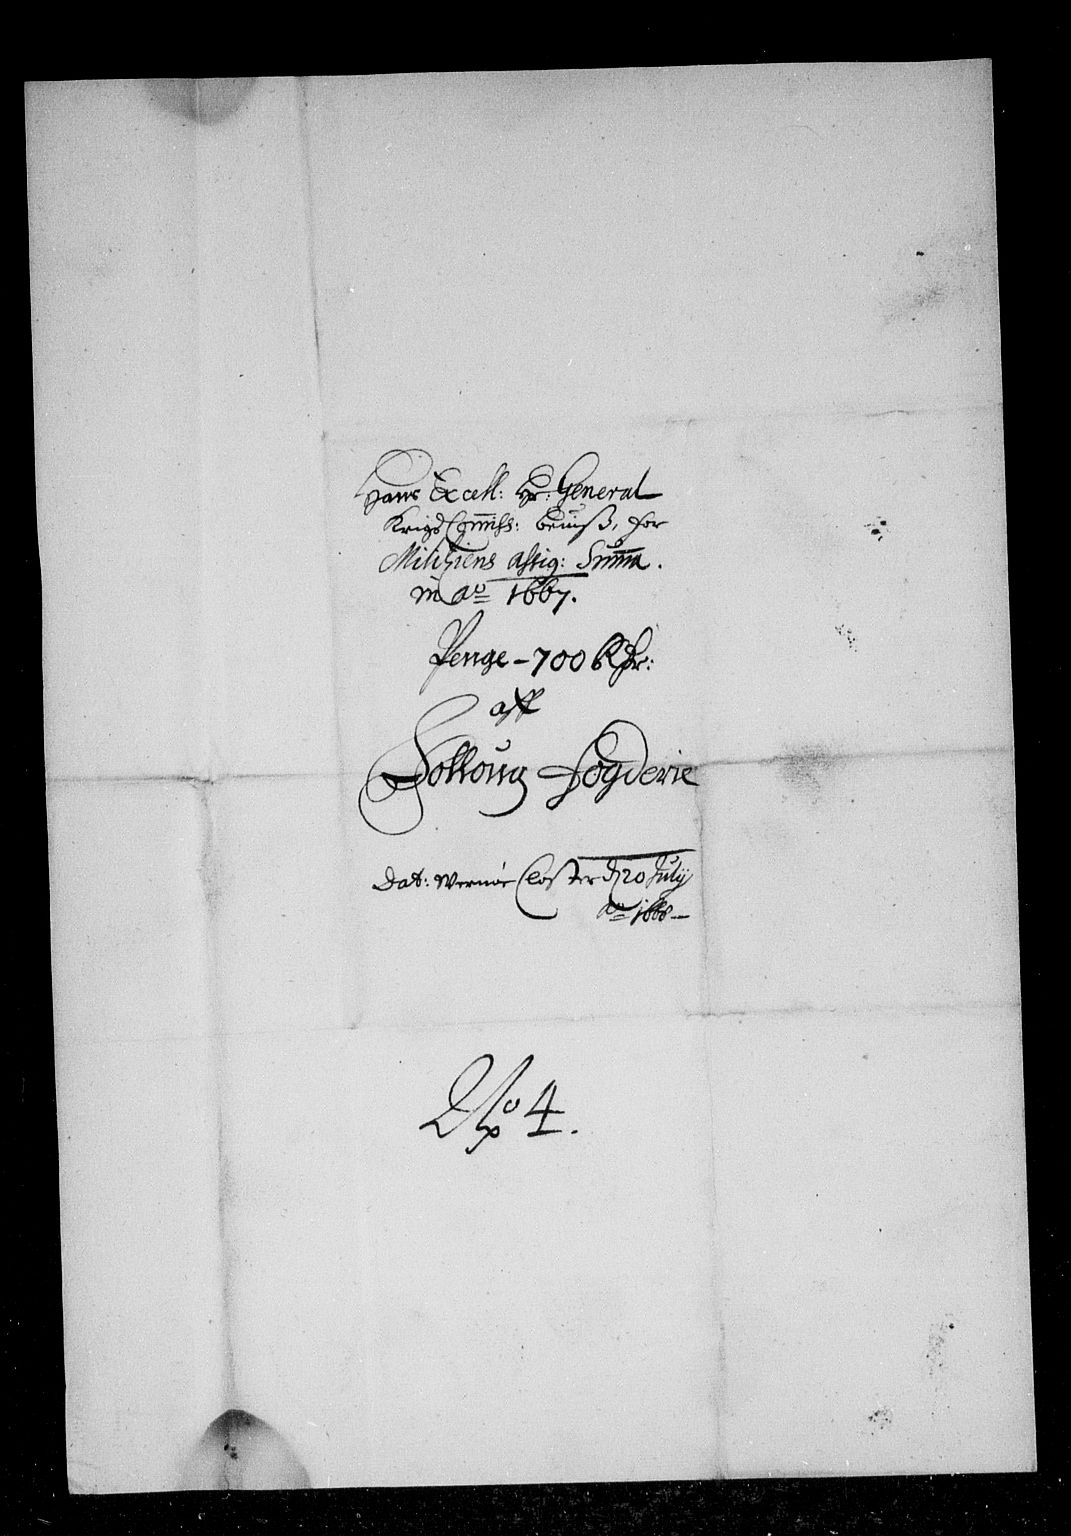 Hans Excell: Hr: General
Krigs Commiss: beuiss, for
Militziens assig: Summa.
in Ao 1667.
Penge - 700 Rdr:
aff
Solloug Fogderie
Dat: Wernøe Closter d 20 July
Ao 1668 -
No 4.